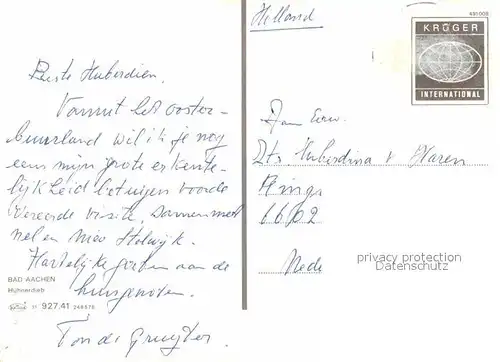 Holland
491008
KRÜGER
INTERNATIONAL
Beste Huberdien,
Vanuit het ooster-
buurland wil ik je nog
eens mijn grote erkente-
lijkheid betuigen voor de
vereerde visite, samen met
nel en
Hartelijke groeten aan de
huisgenoten.
Ton de Gruyter
BAD AACHEN
Hühnerdieb
927,41
Huberdina v Haren
6602
Nede
privacy protection
Datenschutz